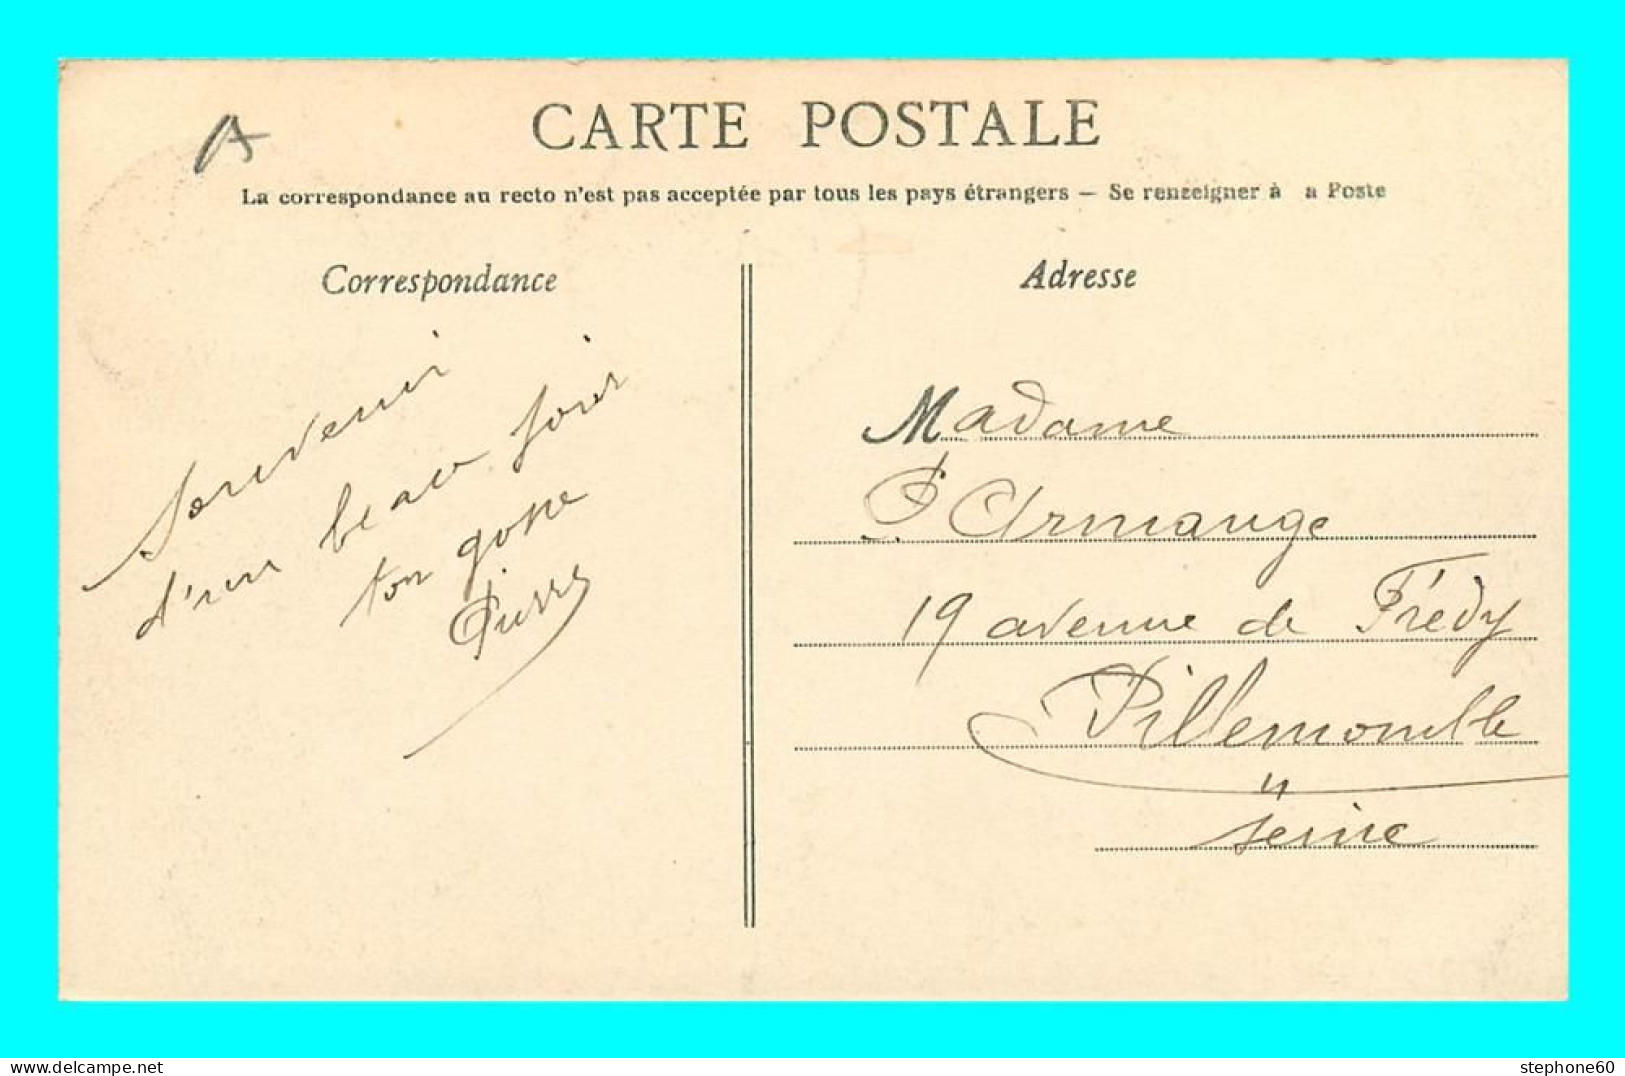 A
CARTE POSTALE
La correspondance au recto n'est pas acceptée par tous les pays étrangers — Se renseigner à a Poste
Correspondance
Souvenir
d'un beau jour
ton gosse
Pierre
Adresse
Madame
P Armange
19 avenue de Frédy
Villemomble
"
Seine
www.delcampe.net
stephone60